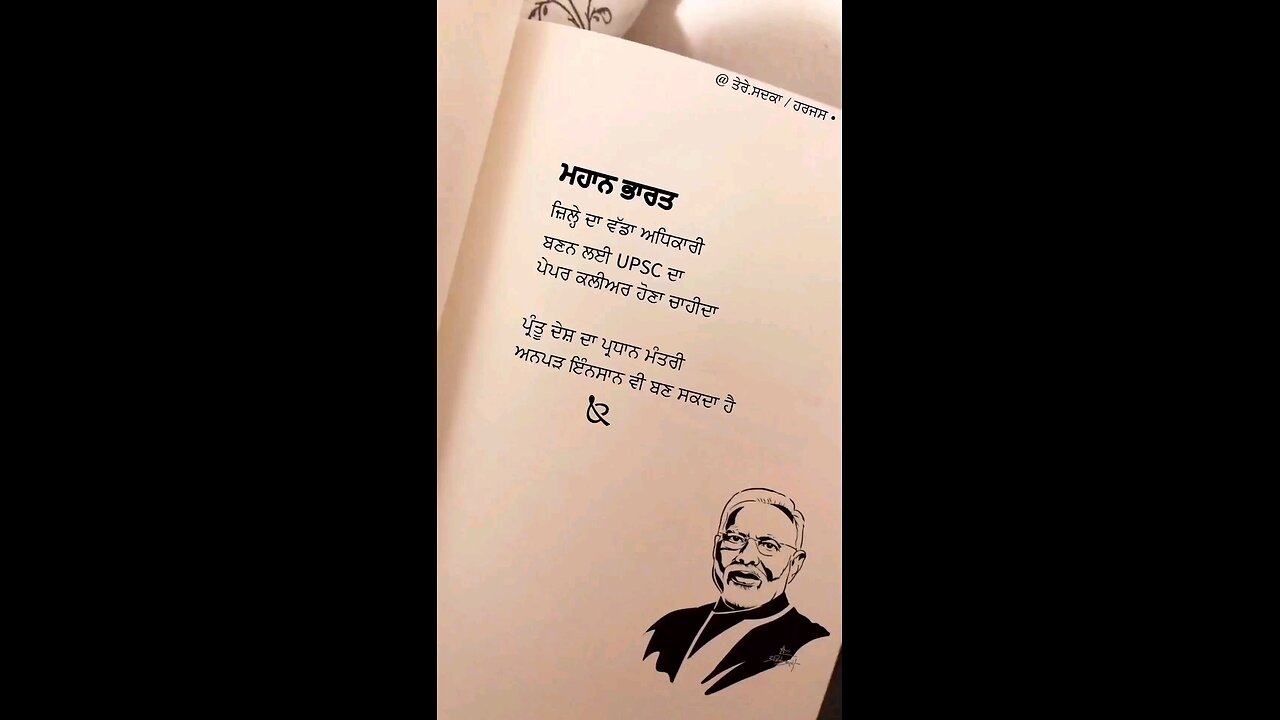 @ ਤੇਰੇ.ਸਦਕਾ / ਹਰਜਸ •
ਮਹਾਨ ਭਾਰਤ
ਜ਼ਿਲ੍ਹੇ ਦਾ ਵੱਡਾ ਅਧਿਕਾਰੀ
ਬਣਨ ਲਈ UPSC ਦਾ
ਪੇਪਰ ਕਲੀਅਰ ਹੋਣਾ ਚਾਹੀਦਾ
ਪ੍ਰੰਤੂ ਦੇਸ਼ ਦਾ ਪ੍ਰਧਾਨ ਮੰਤਰੀ
ਅਨਪੜ ਇੰਨਸਾਨ ਵੀ ਬਣ ਸਕਦਾ ਹੈ